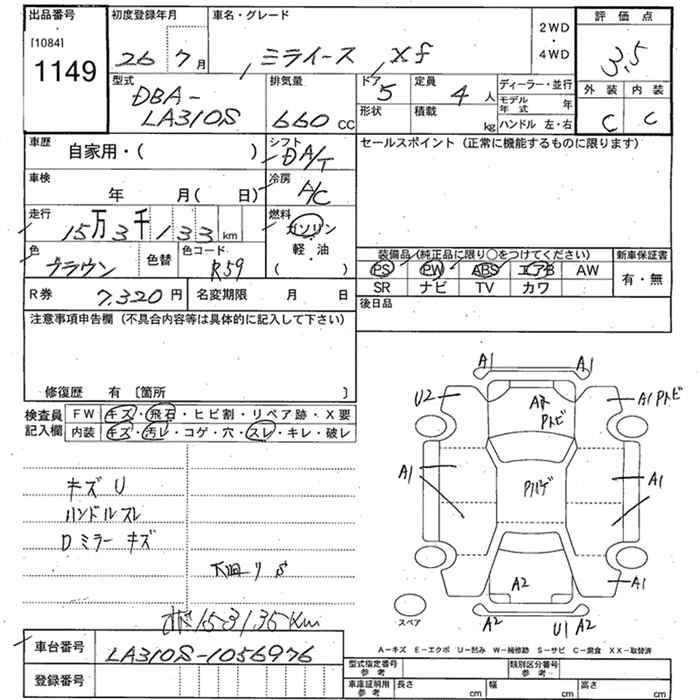 出品番号
[1084]
1149
初度登録年月
26年7月
車名・グレード
ミライース Xf
2WD
・
4WD
評価点
3.5
外装 内装
C C
型式
DBA-
LA310S
排気量
660 CC
ドア 5
形状
定員 4人
積載 kg
ディーラー・並行
モデル年式 年
ハンドル 左・右
車歴
自家用・( )
シフト
DA/T
セールスポイント (正常に機能するものに限ります)
車検
年 月( 日)
冷房
A/C
走行
15万3千133 km
燃料
ガソリン
軽・油
( )
色
ブラウン
色替
色コード
R59
装備品 (純正品に限り○をつけてください)
新車保証書
PS PW ABS エアB AW
SR ナビ TV カワ
有・無
R券 7,320円
名変期限 月 日
後日品
注意事項申告欄 (不具合内容等は具体的に記入して下さい)
修復歴 有 〔箇所 〕
検査員
記入欄
FW キズ・飛石・ヒビ割・リペア跡・X要
内装 キズ・汚レ・コゲ・穴・スレ・キレ・破レ
キズ U
ハンドルスレ
Dミラー キズ
下廻りS
15313.5Km
A1 A1
U2
A1Pトビ
Pトビ
A1
Pハゲ
A1
A2
A1
スペア
A2
U1 A2
A-キズ E-エクボ U-凹み W-補修跡 S-サビ C-腐食 XX-取替済
車台番号
LA310S-1056976
登録番号
型式指定番号
参考
類別区分番号
参考
車庫証明用
参考
長さ cm
幅 cm
高さ cm